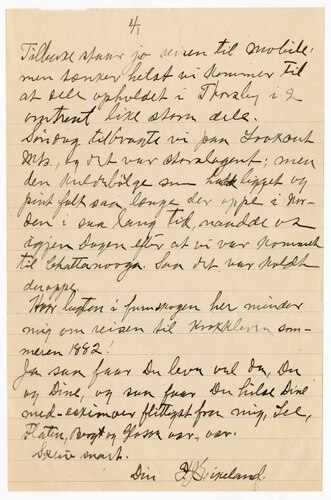 4,
Tilbake staar jo reisen til Mobile;
men tænker helst vi kommer til
at dele opholdet i Thorsby i 2
omtrent like store dele.
Søndag tilbragte vi paa Lookout
Mts., og det var storslagent; men
den kuldebølge som ligget og
pint folk saa længe der oppe i Nor-
den i saa lang tid, naadde os
dagen efter at vi var kommet
til Chattanooga. Saa det var koldt
deroppe.
luften i furuskogen her minder
mig om reisen til Krokkleven som-
meren 1882!
Ja saa faar Du leva vel da, Du
og Dine, og saa faar Du hilse Dine
med-eskimoer flittigst fra mig, Lee,
Flaten, Bøgt og osv. osv.
Skriv snart.
Din